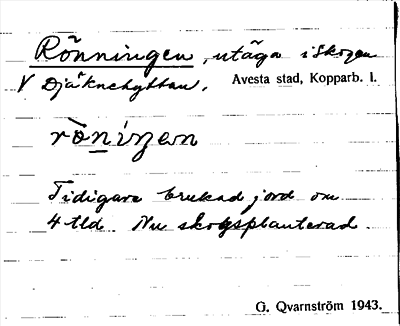 Rönningen, utäga i skogen
V Djäknehyttan. Avesta stad, Kopparb. l.
rö̀niŋen
Tidigare brukad jord om
4 tld. Nu skogsplanterad.
G. Qvarnström 1943.